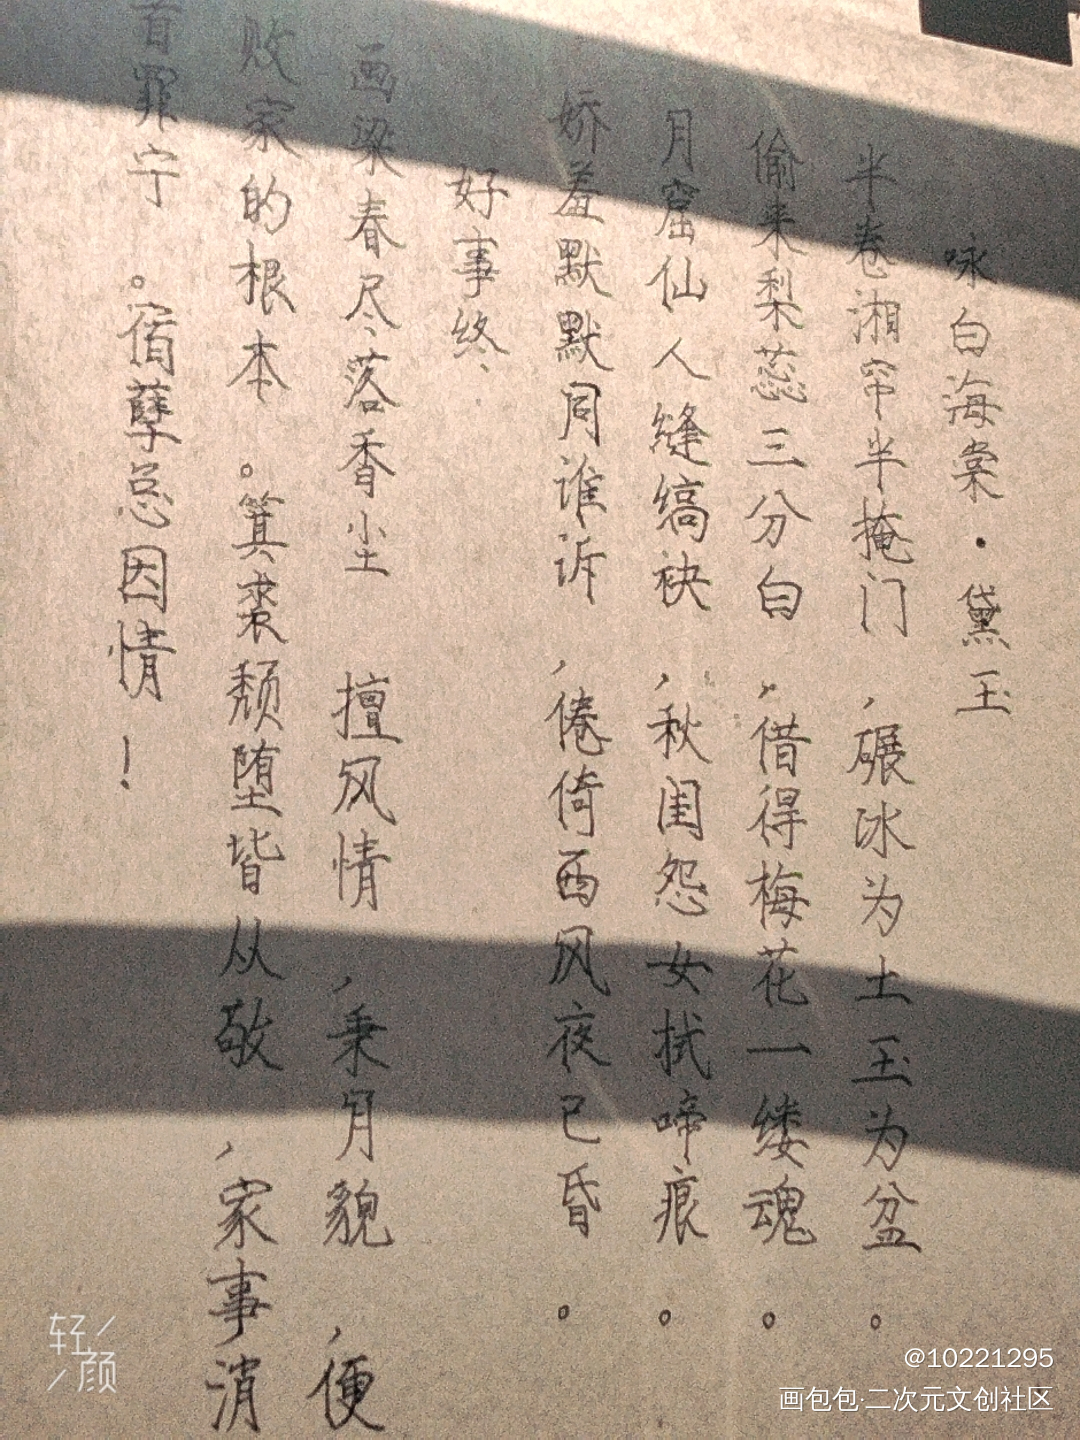 咏白海棠·黛玉
半卷湘帘半掩门，碾冰为土玉为盆。
偷来梨蕊三分白，借得梅花一缕魂。
月窟仙人缝缟袂，秋闺怨女拭啼痕。
娇羞默默同谁诉，倦倚西风夜已昏。
好事终、
画梁春尽落香尘 擅风情，秉月貌，便
败家的根本。箕裘颓堕皆从敬，家事消
首罪宁。宿孽总因情！
轻颜
@10221295
画包包·二次元文创社区